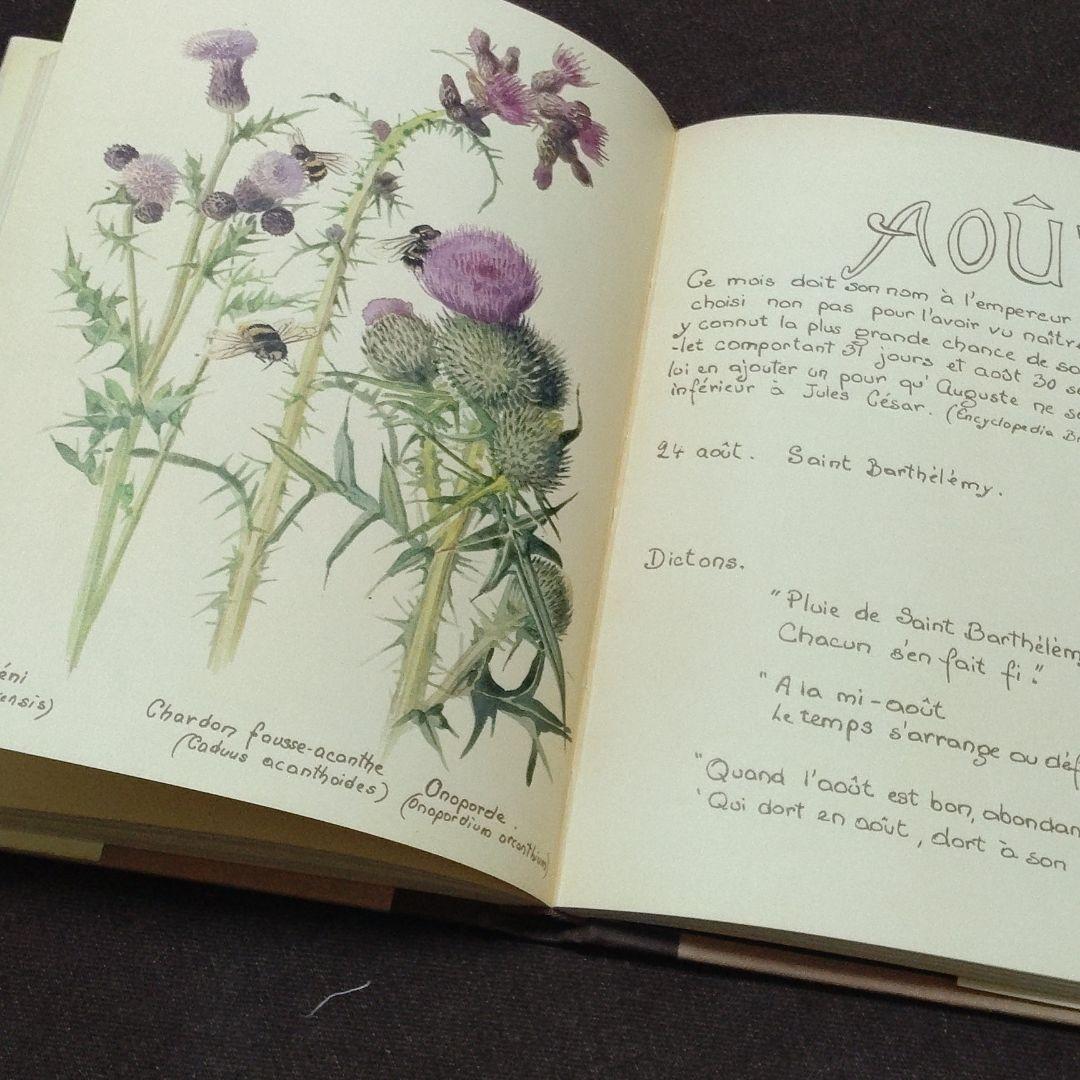 éni
ensis)
Chardon fausse-acanthe
(Caduus acanthoides)
Onoporde.
(Onopordium arcanthium)
AOÛ
Ce mois doit son nom à l'empereur
choisi non pas pour l'avoir vu naîtr
y connut la plus grande chance de so
-let comportant 31 jours et août 30 s
lui en ajouter un pour qu'Auguste ne se
inférieur à Jules César. (Encyclopedia B
24 août. Saint Barthélémy.
Dictons.
"Pluie de Saint Barthélèm
Chacun s'en fait fi."
"A la mi-août
Le temps s'arrange ou déf
"Quand l'août est bon, abondan
'Qui dort en août, dort à son